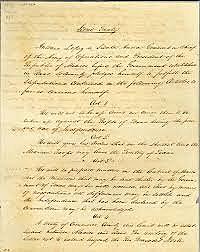 Secret Treaty
Antonio Lopez de Santa Anna General in Chief
of the Army of Operations and President of the
Republic of Mexico before the Government established
in Texas solemnly pledges himself to fulfill the
Stipulations contained in the following Articles so
far as concerns himself
Art 1
He will not take up Arms nor cause them to be
taken up against the People of Texas during the present
war of Independence
Art 2
He will give his Orders that in the shortest time the
Mexican Troops may leave the Territory of Texas
Art 3
He will so prepare matters in the Cabinet of Mexico
that the Mission that may be sent thither by the Government
of Texas may be well received, and that by means
of negotiations all differences may be settled and
the Independence that has been declared by the
Convention may be acknowledged
Art 4
A treaty of Commerce, Amity and limits will be
between Mexico and Texas the territory of the
latter not to extend beyond the Rio Bravo del Norte